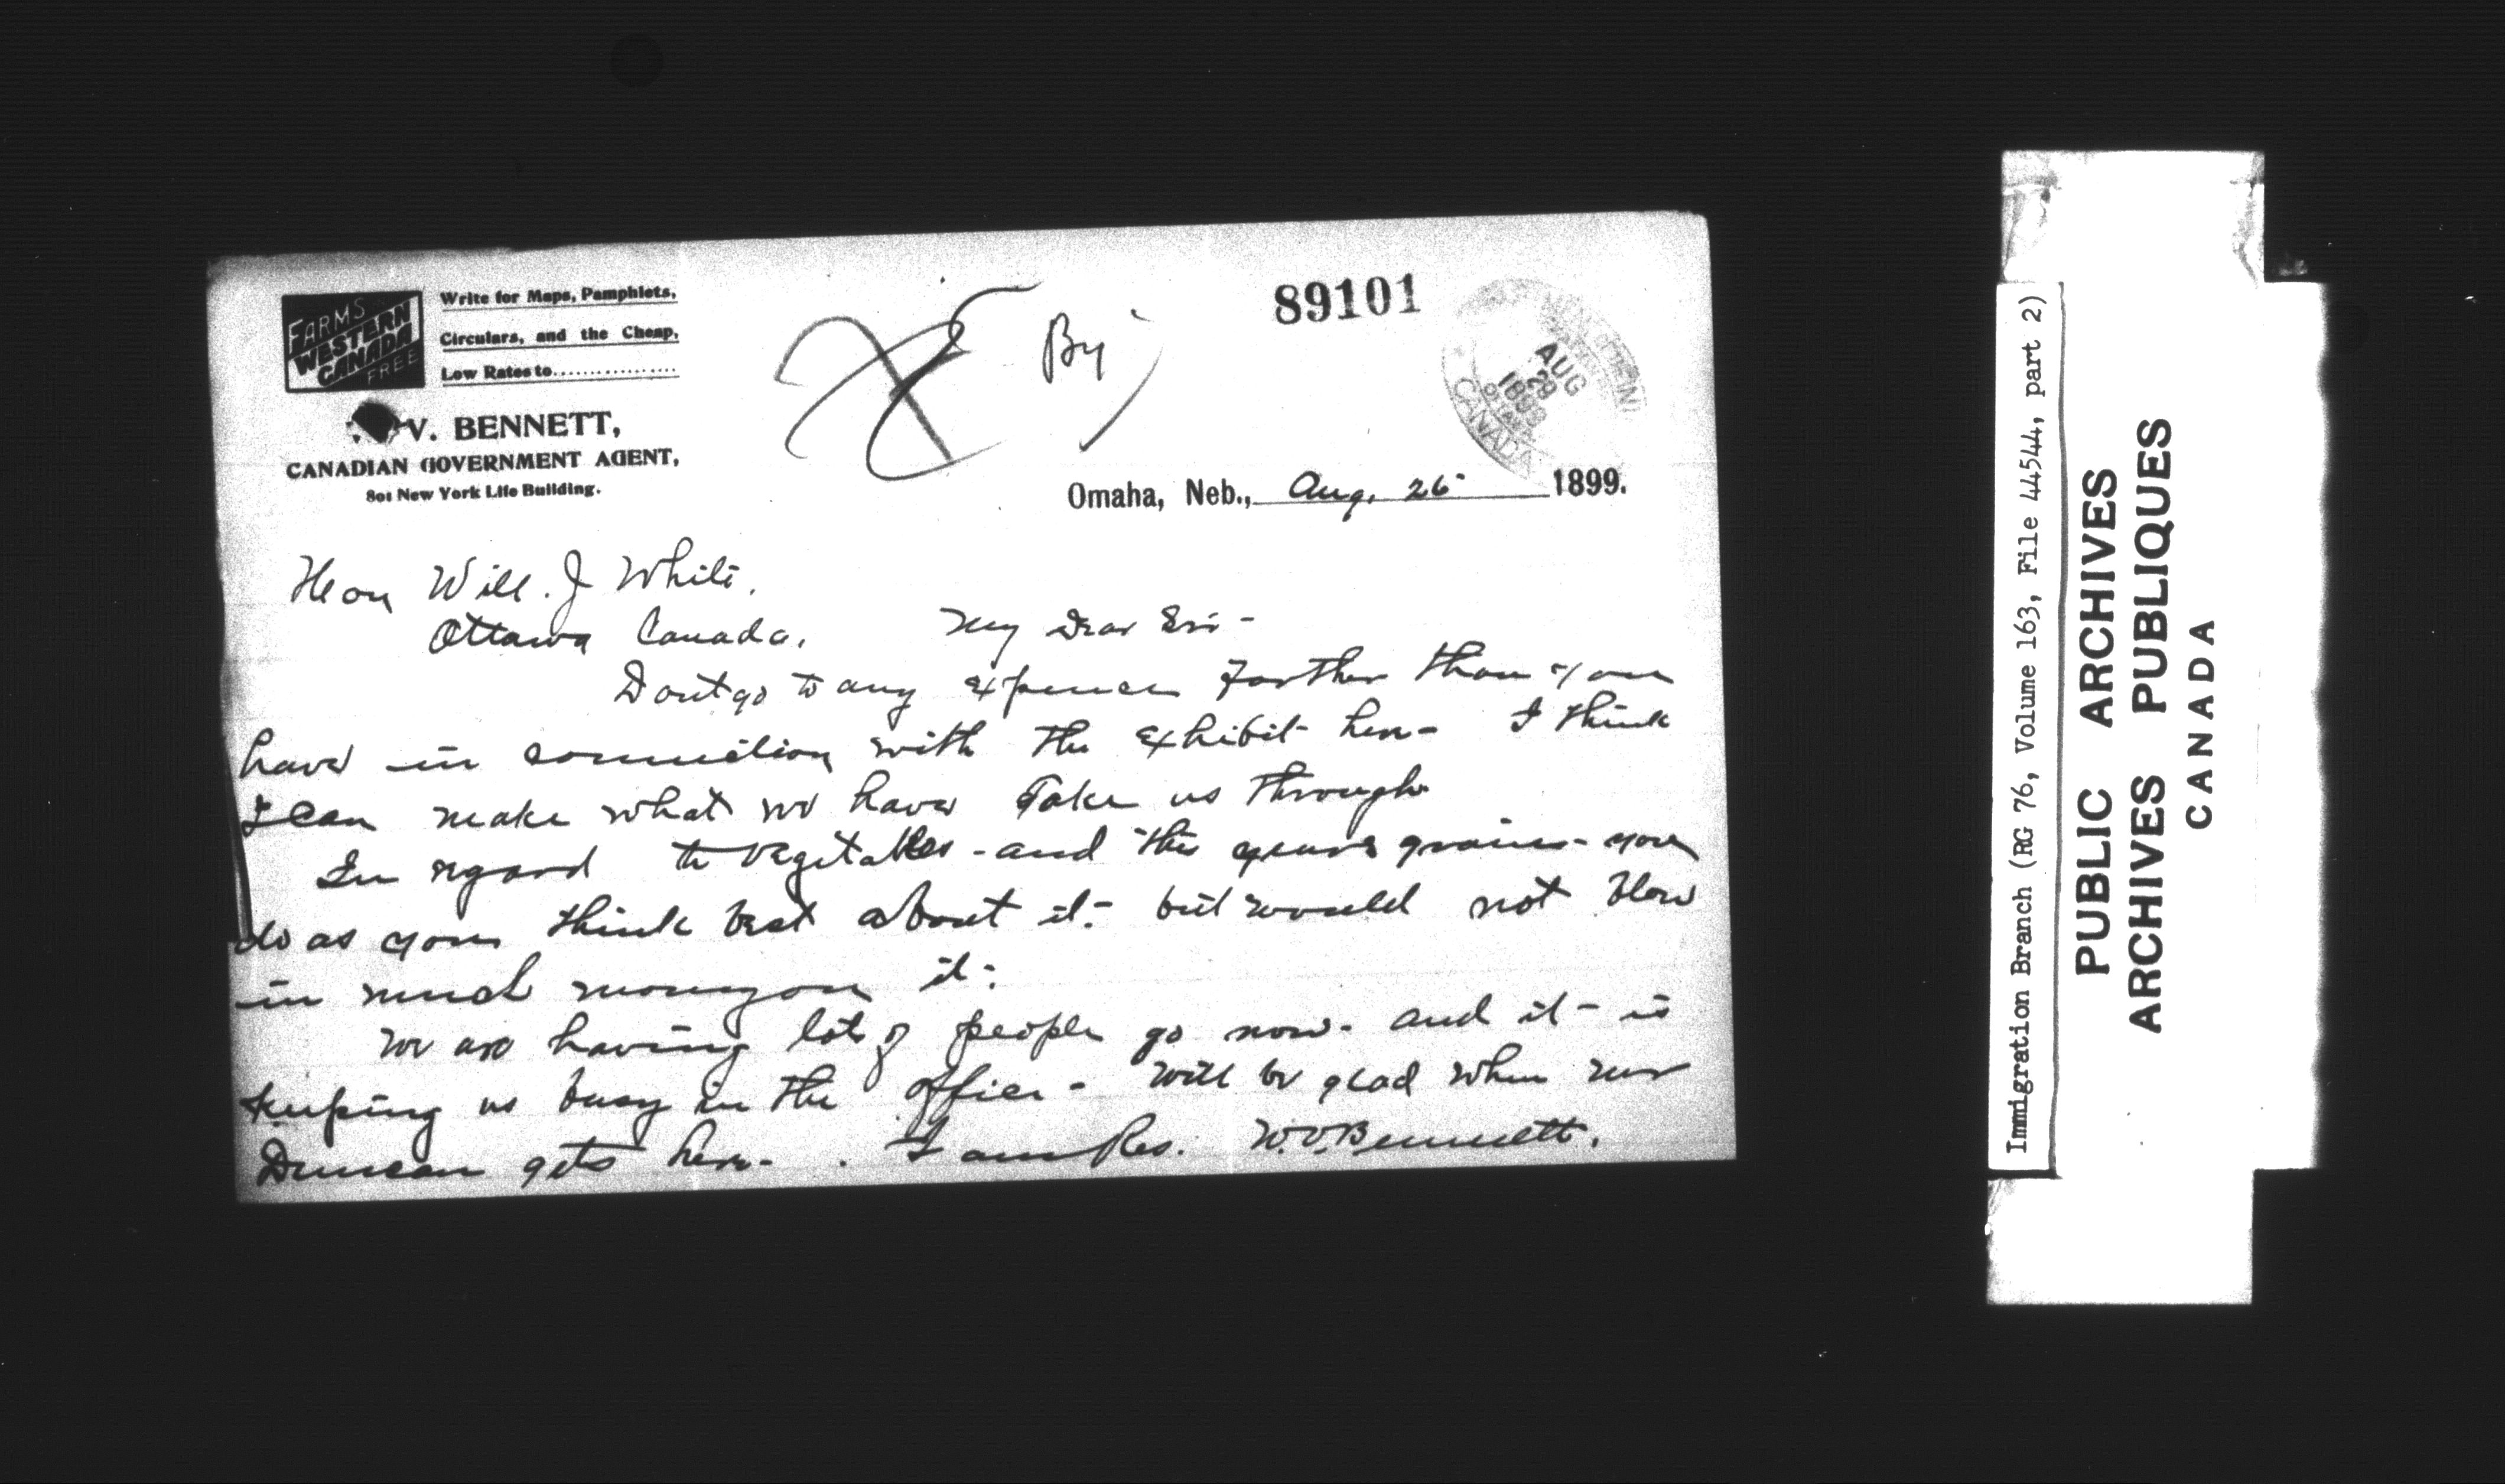 FARMS
WESTERN
CANADA
FREE
Write for Maps, Pamphlets,
Circulars, and the Cheap,
Low Rates to................
V. BENNETT,
CANADIAN GOVERNMENT AGENT,
801 New York Life Building.
By
89101
AUG
28
1899
OTTAWA
CANADA
Omaha, Neb., Aug. 26 1899.
Hon Will. J White.
Ottawa Canada. My Dear Sir -
Dont go to any expence farther than you
have in connection with the exhibit here - I think
I can make what we have take us through
In regard to vegetables - and this years grains - you
do as you think best about it - but would not blow
in much money on it -
We are having lots of people go now - and it - is
keeping us busy in the office - will be glad when
Duncan gets here - . I am Res. W.V. Bennett.
Immigration Branch (RG 76, Volume 163, File 44544, part 2)
PUBLIC ARCHIVES
ARCHIVES PUBLIQUES
CANADA